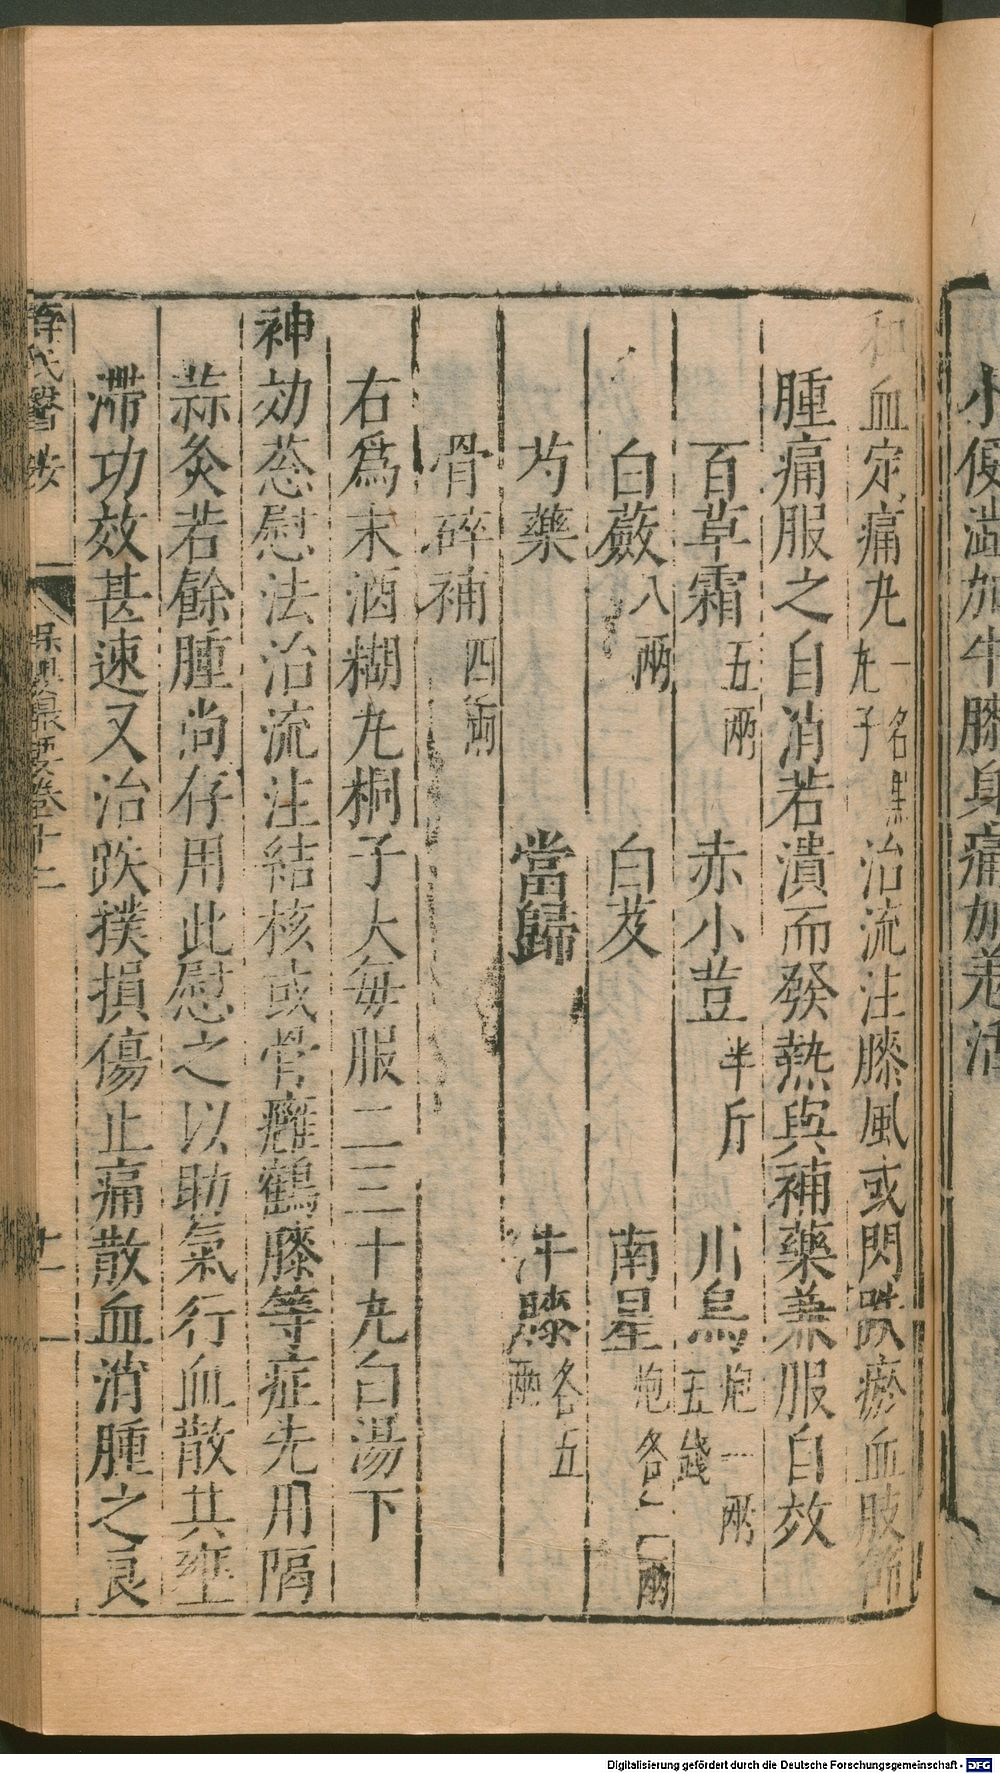 小便澁加牛膝身痛加羗活
和血定痛丸一名黑丸子治流注膝風或閃跌瘀血肢節
腫痛服之自消若潰而發熱與補藥兼服自效
百草霜五兩 赤小荳半斤 川烏炮一兩五錢
白蘞八兩 白芨 南星炮各二兩
芍藥 當歸 牛膝各五兩
骨碎補四兩
右爲末酒糊丸桐子大每服二三十丸白湯下
神効葱慰法治流注結核或骨癰鶴膝等症先用隔
蒜灸若餘腫尚存用此慰之以助氣行血散其壅
滯功效甚速又治跌撲損傷止痛散血消腫之良
薛氏醫按 卷十二 十一
Digitalisierung gefördert durch die Deutsche Forschungsgemeinschaft - DFG